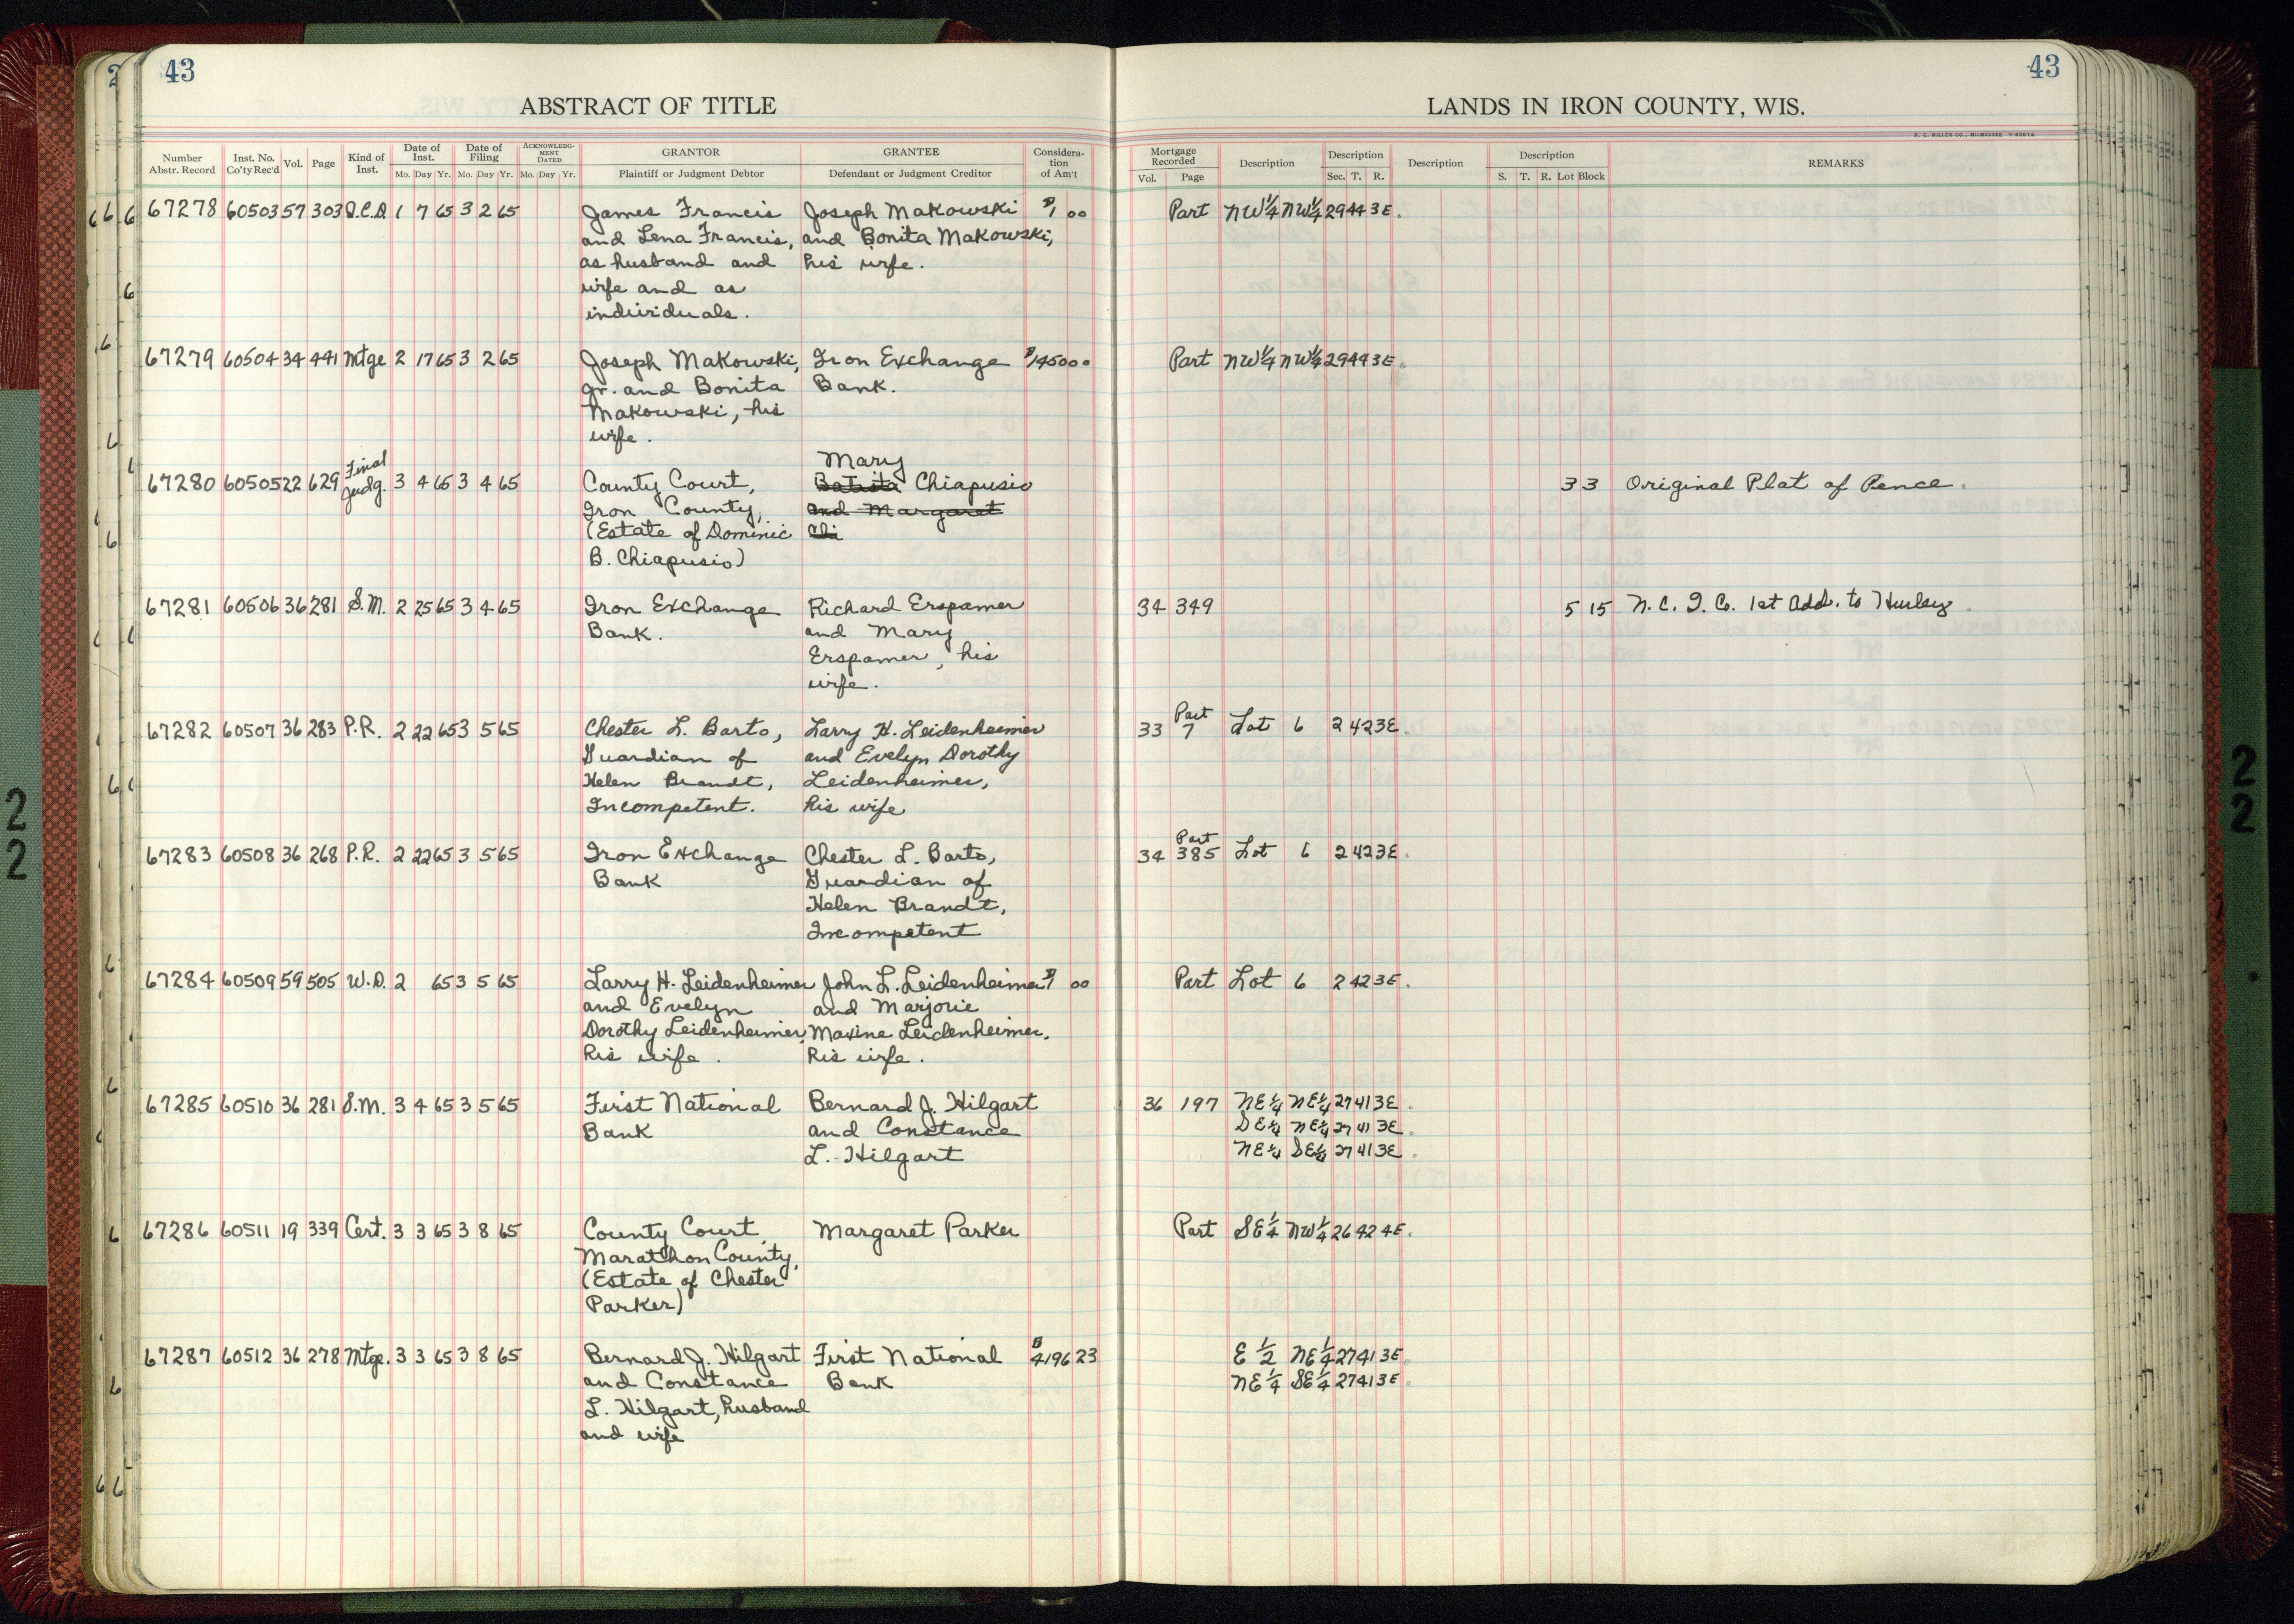 43
43
ABSTRACT OF TITLE
LANDS IN IRON COUNTY, WIS.
H. C. MILLER CO., MILWAUKEE
Number Abstr. Record Inst. No. Co'ty Rec'd Vol. Page Kind of Inst. Date of Inst. Mo. Day Yr. Date of Filing Mo. Day Yr. ACKNOWLEDGMENT DATED Mo. Day Yr. GRANTOR Plaintiff or Judgment Debtor GRANTEE Defendant or Judgment Creditor Consideration of Am't Mortgage Recorded Vol. Page Description Description Sec. T. R. Description Description S. T. R. Lot Block REMARKS
67278 60503 57 303 Q.C.D. 1 7 65 3 2 65 James Francis Joseph Makowski $1 00 Part NW¼ NW¼ 29 44 3E.
and Lena Francis, and Bonita Makowski,
as husband and his wife.
wife and as
individuals.
67279 60504 34 441 Mtge 2 17 65 3 2 65 Joseph Makowski, Iron Exchange $1450 00 Part NW¼ NW¼ 29 44 3E.
Jr. and Bonita Bank.
Makowski, his
wife.
Mary
67280 60505 22 629 Final Judg. 3 4 65 3 4 65 County Court, Batista Chiapusio 3 3 Original Plat of Pence.
Iron County, and Margaret
(Estate of Dominic Chi
B. Chiapusio)
67281 60506 36 281 S.M. 2 25 65 3 4 65 Iron Exchange Richard Erspamer 34 349 5 15 N. C. I. Co. 1st Add. to Hurley.
Bank. and Mary
Erspamer, his
wife.
Part
67282 60507 36 283 P.R. 2 22 65 3 5 65 Chester L. Barto, Larry H. Leidenheimer 33 7 Lot 6 2 42 3E.
Guardian of and Evelyn Dorothy
Helen Brandt, Leidenheimer,
Incompetent. his wife
Part
67283 60508 36 268 P.R. 2 22 65 3 5 65 Iron Exchange Chester L. Barto, 34 385 Lot 6 2 42 3E.
Bank Guardian of
Helen Brandt,
Incompetent
67284 60509 59 505 W.D. 2 65 3 5 65 Larry H. Leidenheimer John L. Leidenheimer $1 00 Part Lot 6 2 42 3E.
and Evelyn and Marjorie
Dorothy Leidenheimer, Maxine Leidenheimer,
his wife. his wife.
67285 60510 36 281 S.M. 3 4 65 3 5 65 First National Bernard J. Hilgart 36 197 NE¼ NE¼ 27 41 3E.
Bank and Constance SE¼ NE¼ 27 41 3E.
L. Hilgart NE¼ SE¼ 27 41 3E.
67286 60511 19 339 Cert. 3 3 65 3 8 65 County Court, Margaret Parker Part SE¼ NW¼ 26 42 4E.
Marathon County,
(Estate of Chester
Parker)
67287 60512 36 278 Mtge. 3 3 65 3 8 65 Bernard J. Hilgart First National $4196 23 E ½ NE¼ 27 41 3E.
and Constance Bank NE¼ SE¼ 27 41 3E.
L. Hilgart, husband
and wife
2
2
2
2